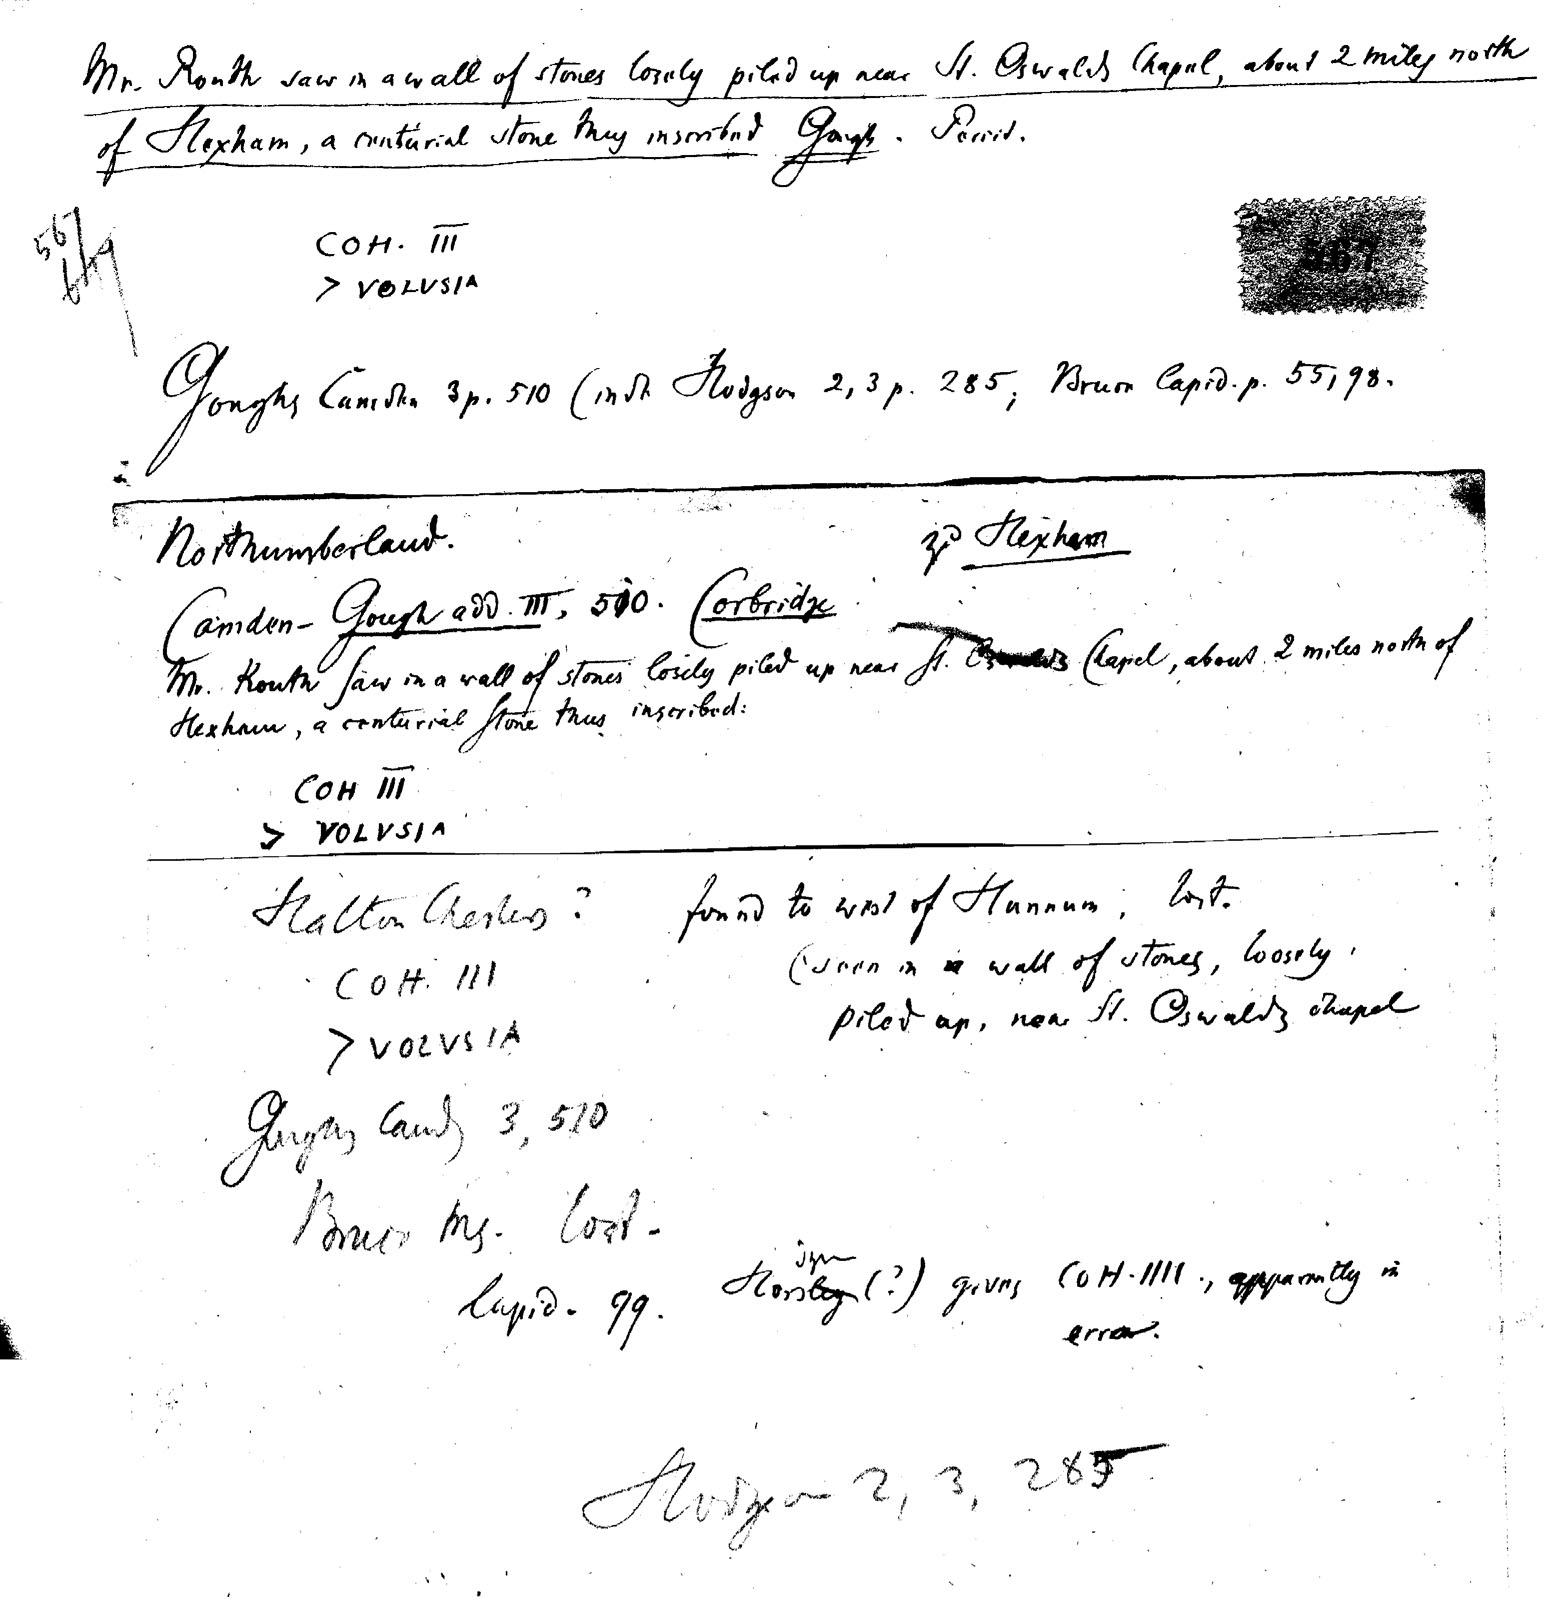 Mr. Routh saw in a wall of stones losely piled up near St. Oswalds Chapel, about 2 miles north
of Hexham, a centurial stone thus inscribed Gough. Periit.
567
COH. III
> VOLVSIA
567
Goughs Camden 3 p. 510 (inde Hodgson 2, 3 p. 285; Bruce lapid. p. 55, 98.
Northumberland.
zu Hexham
Camden - Gough add. III, 510. Corbridge
Mr. Routh saw in a wall of stones losely piled up near St. Oswalds Chapel, about 2 miles north of
Hexham, a centurial stone thus inscribed:
COH III
> VOLVSIA
Halton Chesters? found to west of Hunnum; lost.
(seen in a wall of stones, loosely
COH. III
piled up, near St. Oswalds chapel
> VOLVSIA
Goughs Camd 3, 510
Bruce Ms. lost.
lapid. 99. Horsley (?) gives COH. IIII., apparently in
error.
Hodgson 2, 3, 285